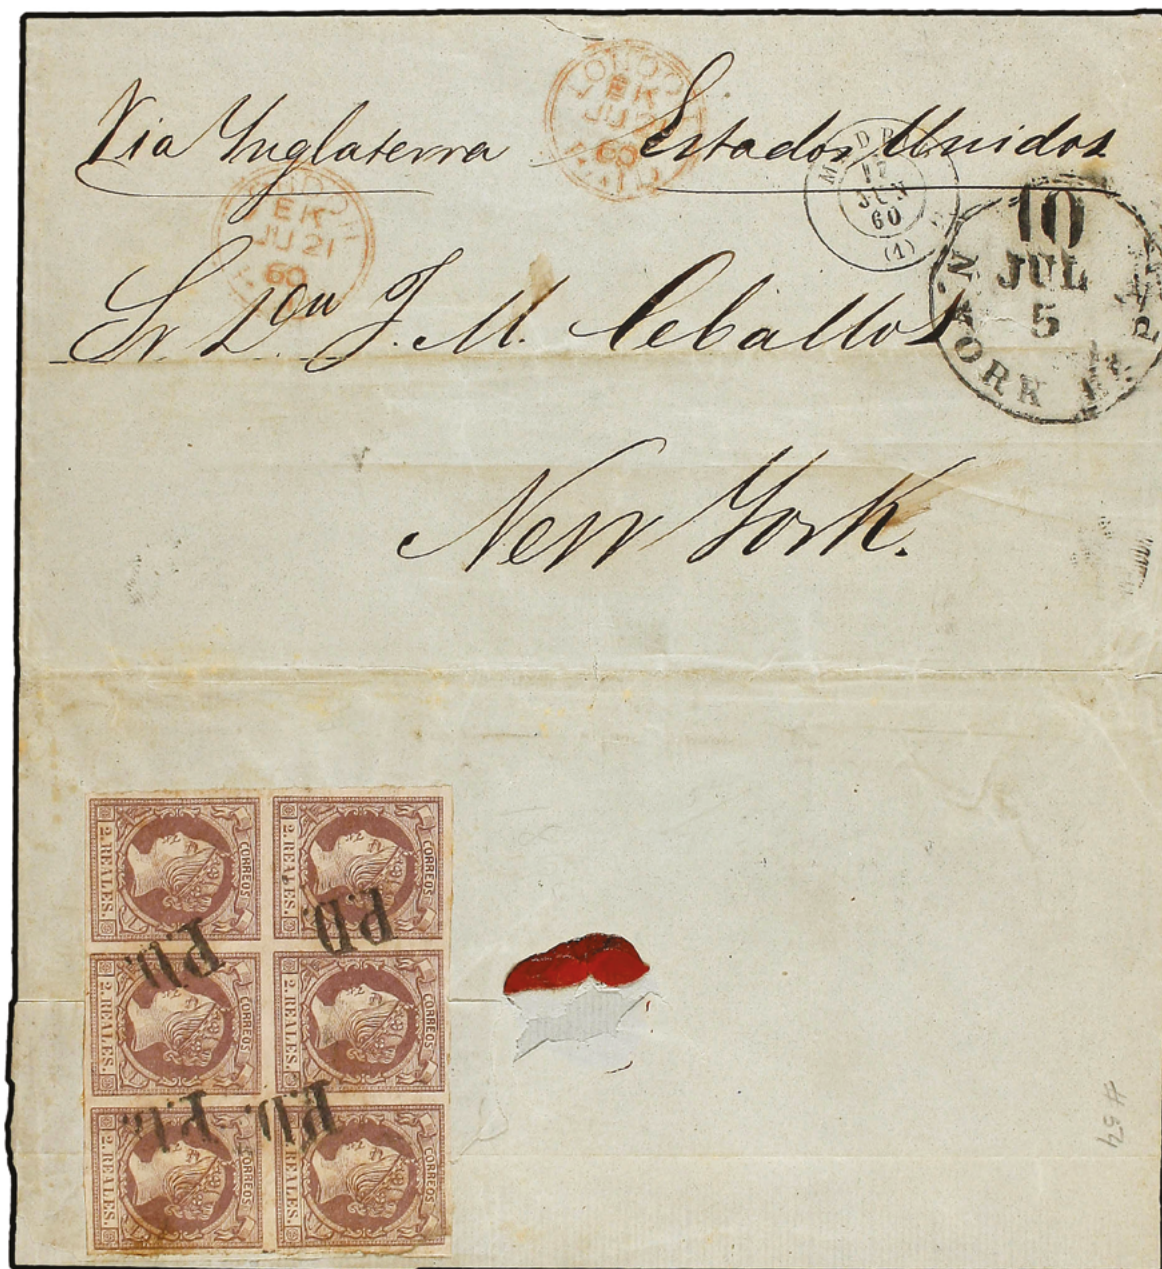 Via Ynglaterra Estados Unidos
LONDON
EK
JU 21
60
PAID
LONDON
EK
JU 21
60
MADRID
JUN
60
(1)
10
JUL
5
N. YORK
Sr. Dn. J. M. Ceballos
New York.
CORREOS
2. REALES.
CORREOS
2. REALES.
CORREOS
2. REALES.
CORREOS
2. REALES.
CORREOS
2. REALES.
CORREOS
REALES.
P.D.
P.D.
P.D.
P.D.
# 54